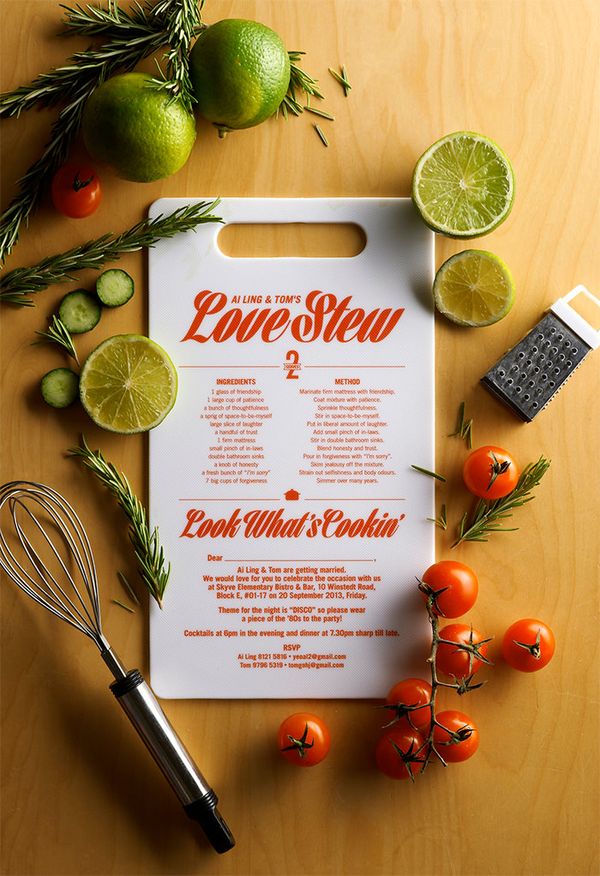 AI LING & TOM'S
Love Stew
2
INGREDIENTS
1 glass of friendship
1 large cup of patience
a bunch of thoughtfulness
a sprig of space-to-be-myself
large slice of laughter
a handful of trust
1 firm mattress
small pinch of in-laws
double bathroom sinks
a knob of honesty
a fresh bunch of "I'm sorry"
7 big cups of forgiveness
METHOD
Marinate firm mattress with friendship.
Coat mixture with patience.
Sprinkle thoughtfulness.
Stir in space-to-be-myself.
Put in liberal amount of laughter.
Add small pinch of in-laws.
Stir in double bathroom sinks.
Blend honesty and trust.
Pour in forgiveness with "I'm sorry".
Skim jealousy off the mixture.
Strain out selfishness and body odours.
Simmer over many years.
Look What's Cookin'
Dear ,
Ai Ling & Tom are getting married.
We would love for you to celebrate the occasion with us
at Skyve Elementary Bistro & Bar, 10 Winstedt Road,
Block E, #01-17 on 20 September 2013, Friday.
Theme for the night is "DISCO" so please wear
a piece of the '80s to the party!
Cocktails at 6pm in the evening and dinner at 7.30pm sharp till late.
RSVP
Ai Ling 8121 5816 • yeoal2@gmail.com
Tom 9796 5319 • tomgohj@gmail.com